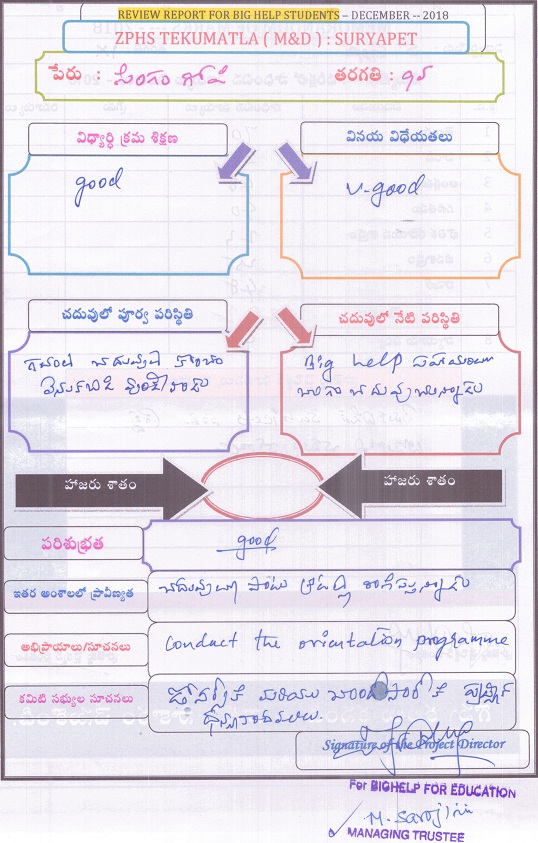 REVIEW REPORT FOR BIG HELP STUDENTS – DECEMBER -- 2018
ZPHS TEKUMATLA ( M&D ) : SURYAPET
పేరు : సింగం గోపి తరగతి : 9వ
విద్యార్థి క్రమ శిక్షణ వినయ విధేయతలు
good V-good
చదువులో పూర్వ పరిస్థితి చదువులో నేటి పరిస్థితి
గతంలో చదువులో కొంచం
వెనుకబడి ఉండేవాడు
Big help సహాయంతో
బాగా చదువుచున్నాడు
హాజరు శాతం హాజరు శాతం
పరిశుభ్రత good
ఇతర అంశాలలో ప్రావీణ్యత చదువుతో పాటు ఆటల్లో రాణిస్తున్నాడు
అభిప్రాయాలు/సూచనలు Conduct the orientation programme
కమిటి సభ్యుల సూచనలు మరియు
ధన్యవాదములు.
Signature of the Project Director
For BIGHELP FOR EDUCATION
M. Sarojini
MANAGING TRUSTEE